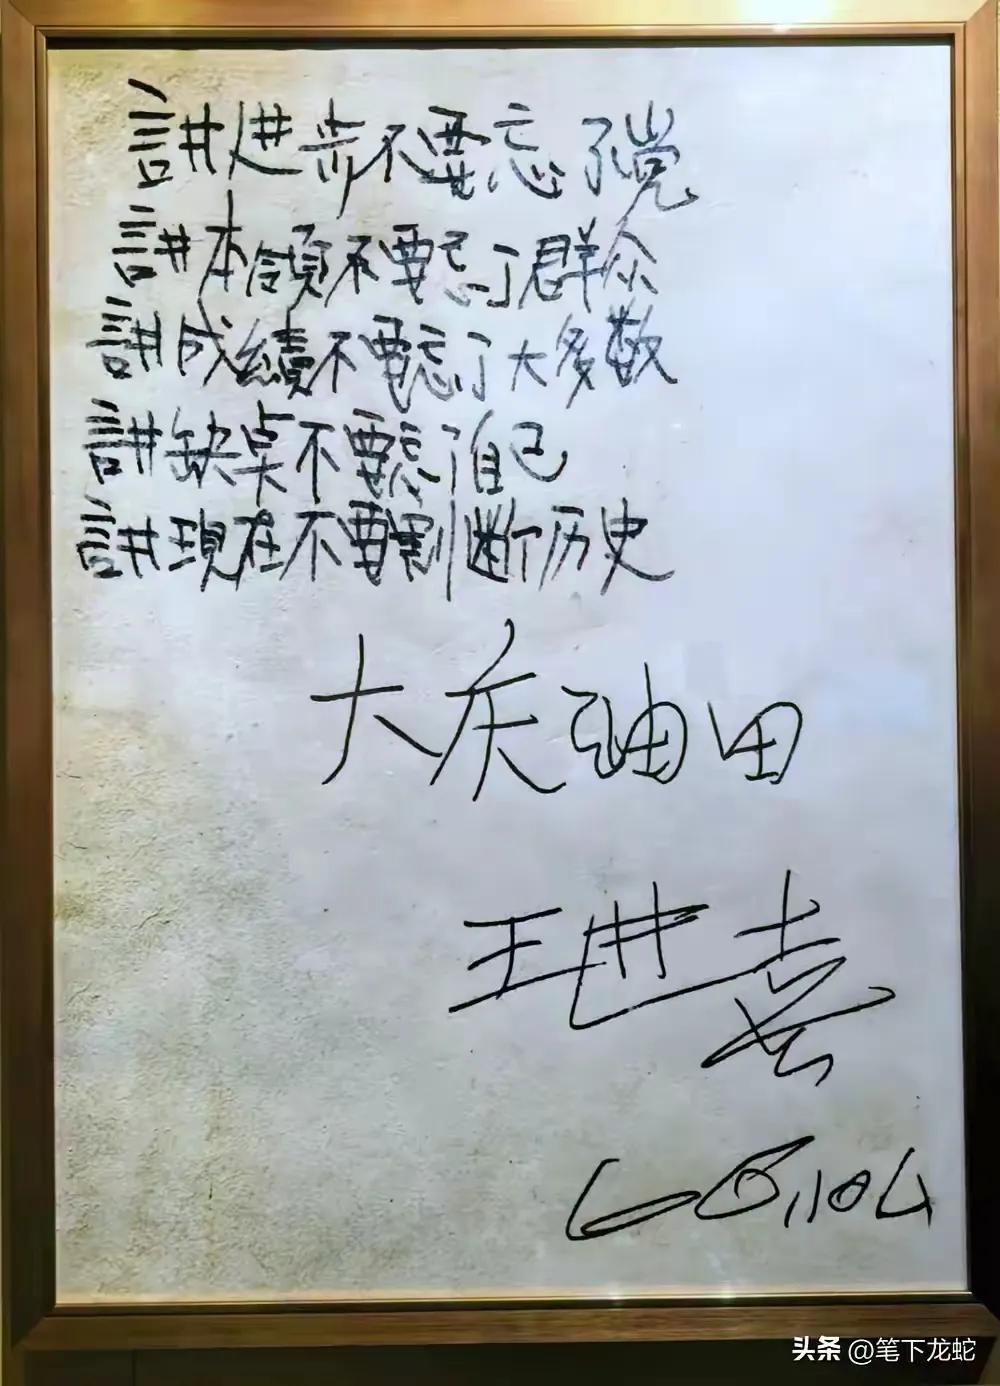 講进步不要忘了党
講本領不要忘了群众
講成績不要忘了大多数
講缺点不要忘了自己
講現在不要割断历史
大庆油田
王进喜
头条 @笔下龙蛇